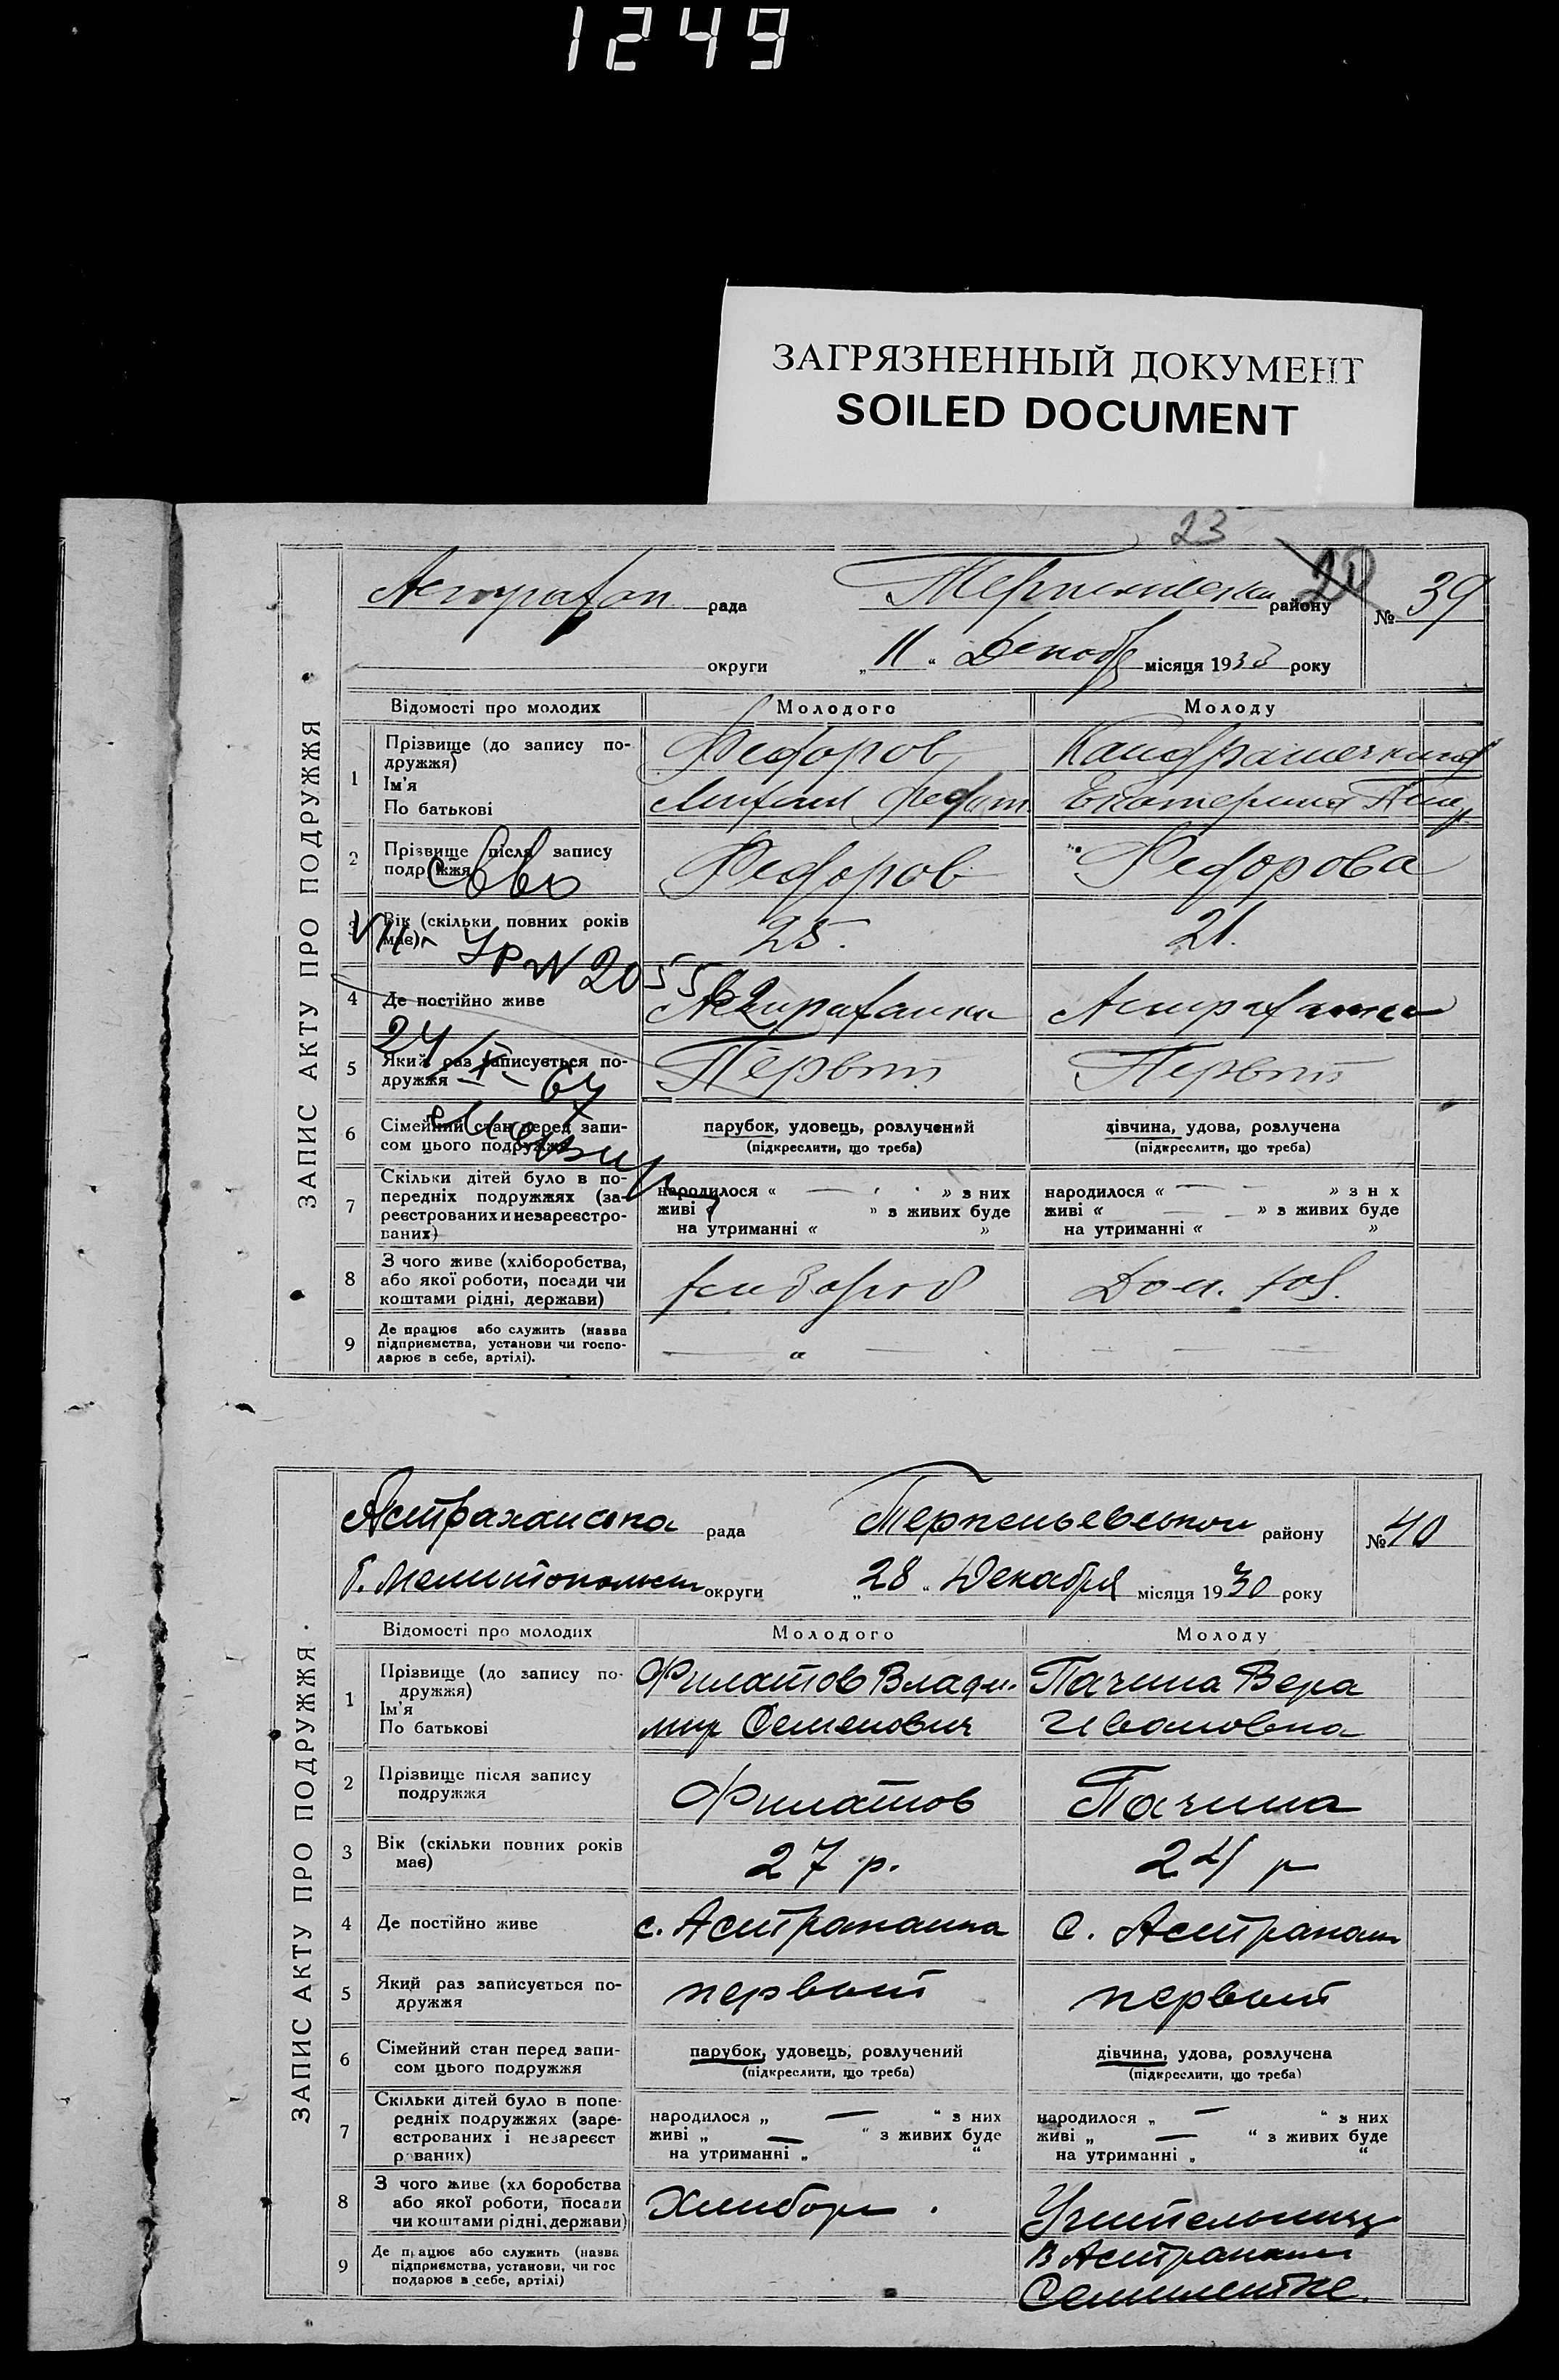 1249
ЗАГРЯЗНЕННЫЙ ДОКУМЕНТ
SOILED DOCUMENT
23
рада району № 39
округи „11“ місяця 193 року
ЗАПИС АКТУ ПРО ПОДРУЖЖЯ
Відомості про молодих Молодого Молоду
1 Прізвище (до запису по-
дружжя)
Ім'я
По батькові
Федоров
Екатерина
2 Прізвище після запису
подружжя
Федоров Федорова
3 Вік (скільки повних років
має)
25. 21.
УР № 2055
4 Де постійно живе
24
64
5 Який раз записується по-
дружжя
Первый Первый
6 Сімейний стан перед запи-
сом цього подружжя
парубок, удовець, розлучений
(підкреслити, що треба)
дівчина, удова, розлучена
(підкреслити, що треба)
7 Скільки дітей було в по-
передніх подружжях (за-
реєстрованих и незареєстро-
ваних)
народилося « — » з них
живі « » з живих буде
на утриманні « »
народилося « — » з н х
живі « — » з живих буде
на утриманні « »
8 З чого живе (хліборобства,
або якої роботи, посади чи
коштами рідні, держави)
Дом. хоз.
9 Де працює або служить (назва
підприємства, установи чи госпо-
дарює в себе, артілі).
— „ —
Астраханська рада району № 40
округи „28“ Декабря місяця 1930 року
ЗАПИС АКТУ ПРО ПОДРУЖЖЯ
Відомості про молодих Молодого Молоду
1 Прізвище (до запису по-
дружжя)
Ім'я
По батькові
Филатов Влади-
мир Семенович
Пачина Вера
Ивановна
2 Прізвище після запису
подружжя
Филатов Пачина
3 Вік (скільки повних років
має)
27 р. 24 р
4 Де постійно живе
с. Астраханка с. Астрахан
5 Який раз записується по-
дружжя
первый первый
6 Сімейний стан перед запи-
сом цього подружжя
парубок, удовець, розлучений
(підкреслити, що треба)
дівчина, удова, розлучена
(підкреслити, що треба)
7 Скільки дітей було в попе-
редніх подружжях (заре-
єстрованих і незареєст
р ваних)
народилося „ — “ з них
живі „ — “ з живих буде
на утриманні „ “
народилося „ — “ з них
живі „ — “ з живих буде
на утриманні „ “
8 З чого живе (хл боробства
або якої роботи, посади
чи коштами рідні, держави)
Учительница
9 Де працює або служить (назва
підприємства, установи, чи гос
подарює в себе, артілі)
в
Семилетке.